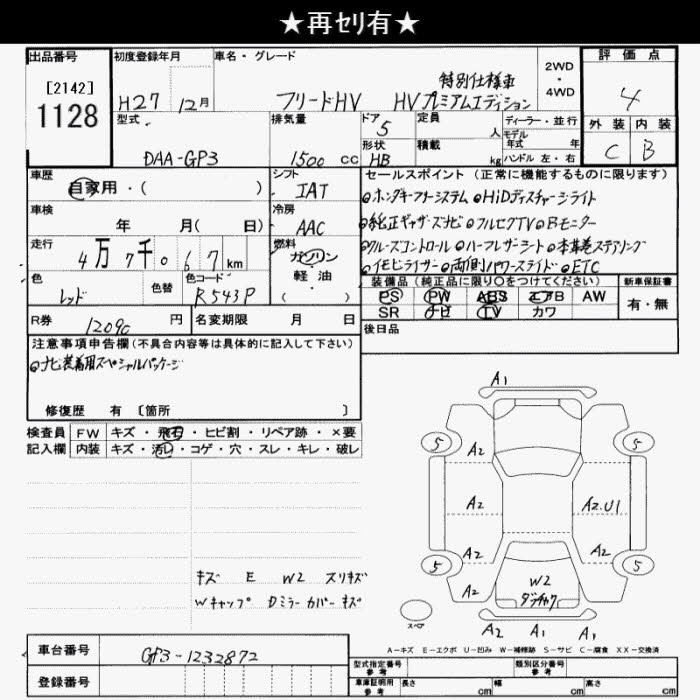 ★再ｾﾘ有★
出品番号
[2142]
1128
初度登録年月
H27 12月
車名・グレード
フリードHV
特別仕様車
HVプレミアムエディション
2WD
・
4WD
評価点
4
外装 内装
C B
型式
DAA-GP3
排気量
1500 cc
ドア
5
形状
HB
定員
人
積載
kg
ディーラー・並行
モデル
年式 年
ハンドル 左・右
車歴
自家用・( )
シフト
IAT
車検
年 月( 日)
冷房
AAC
走行
4万7千067km
燃料
ガソリン
軽・油
( )
色
レッド
色替
色コード
R543P
R券
12090 円
名変期限 月 日
セールスポイント(正常に機能するものに限ります)
◎ホンダキーフリーシステム ◎HiDディスチャージライト
◎純正ギャザズナビ ◎フルセグTV ◎Bモニター
◎クルーズコントロール ◎ハーフレザーシート ◎本革巻ステアリング
◎イモビライザー ◎両側パワースライド ◎ETC
装備品(純正品に限り○をつけてください)
PS PW ABS エアB AW
SR ナビ TV カワ
新車保証書
有・無
後日品
注意事項申告欄(不具合内容等は具体的に記入して下さい)
◎ナビ装着用スペシャルパッケージ
修復歴 有 〔箇所 〕
検査員
記入欄
FW キズ・飛石・ヒビ割・リペア跡・×要
内装 キズ・汚レ・コゲ・穴・スレ・キレ・破レ
キズ E W2 スリキズ
Wキャップ Dミラーカバーキズ
A1
5 5
A2
A2 A2.U1
A2 A2
5 5
A2 W2
ダンチャク
スペア
A2 A1 A1
A-キズ E-エクボ U-凹み W-補修跡 S-サビ C-腐食 XX-交換済
車台番号
GP3-1232872
登録番号
型式指定番号
参考
類別区分番号
参考
車庫証明用
参考
長さ cm 幅 cm 高さ cm